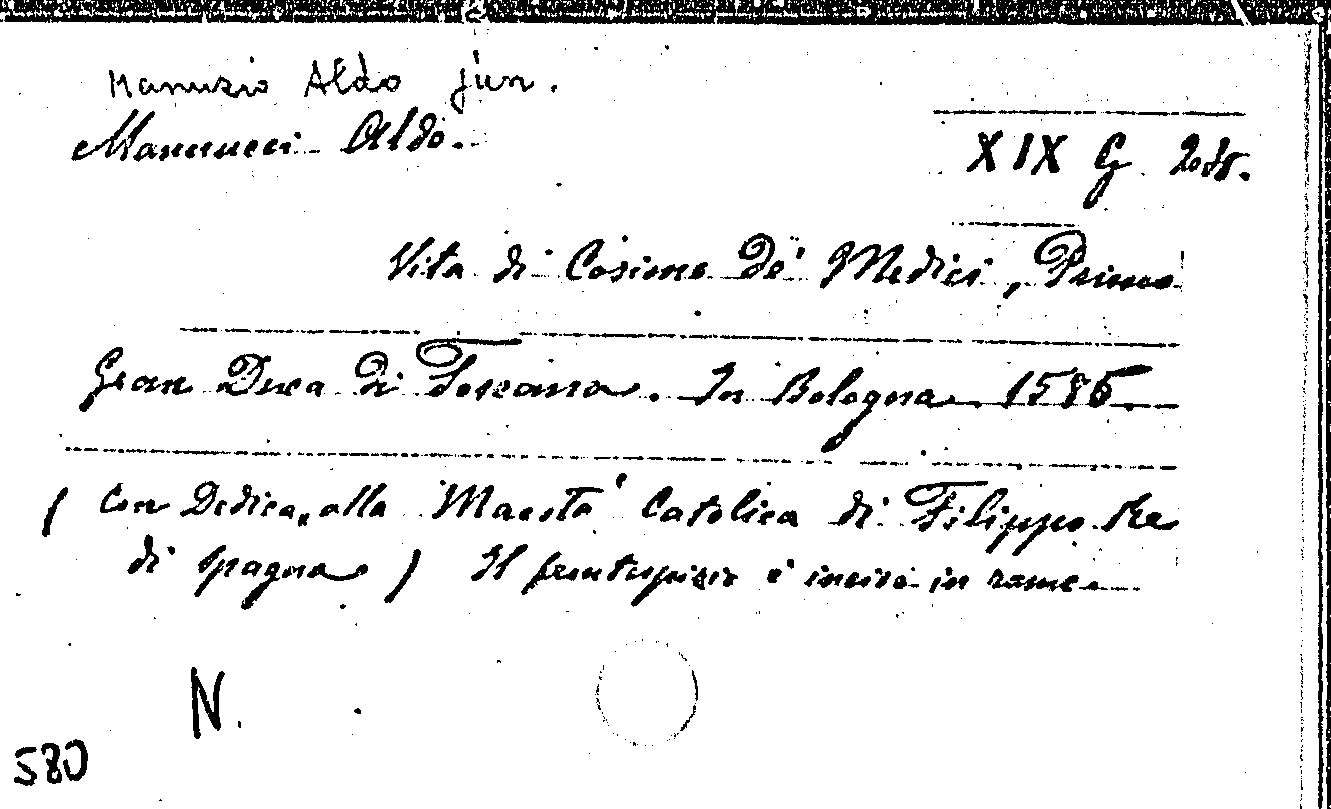 Manuzio Aldo jun.
Mannucci Aldo.
XIX G
Vita di Cosimo De' Medici, Primo
Gran Duca di Toscana. In Bologna 1586.
( Con Dedica alla Maestà Catolica di Filippo Re
di Spagna ) Il frontespizio è inciso in rame
N.
580